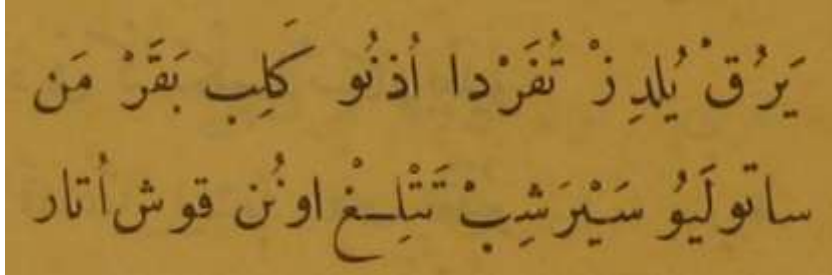 يَرُقْ يُلدِزْ تُغَرْدا أُذنُو كَلِب بَقَرْ مَن
ساتولَيُو سَيْرَشِبْ تَتْلِـغْ اونُن قوش أُتار